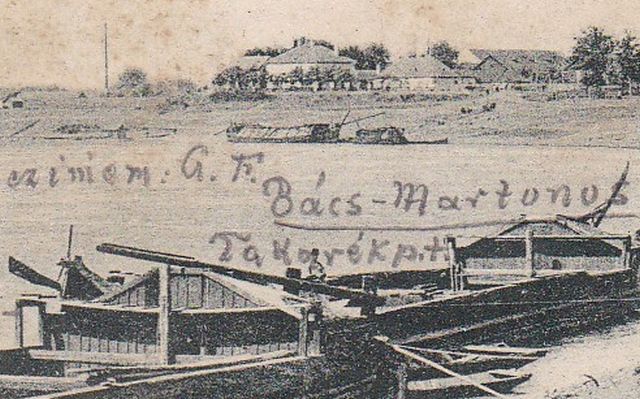 czimem: A. F.
Bács-Martonos
Takarékp.t.